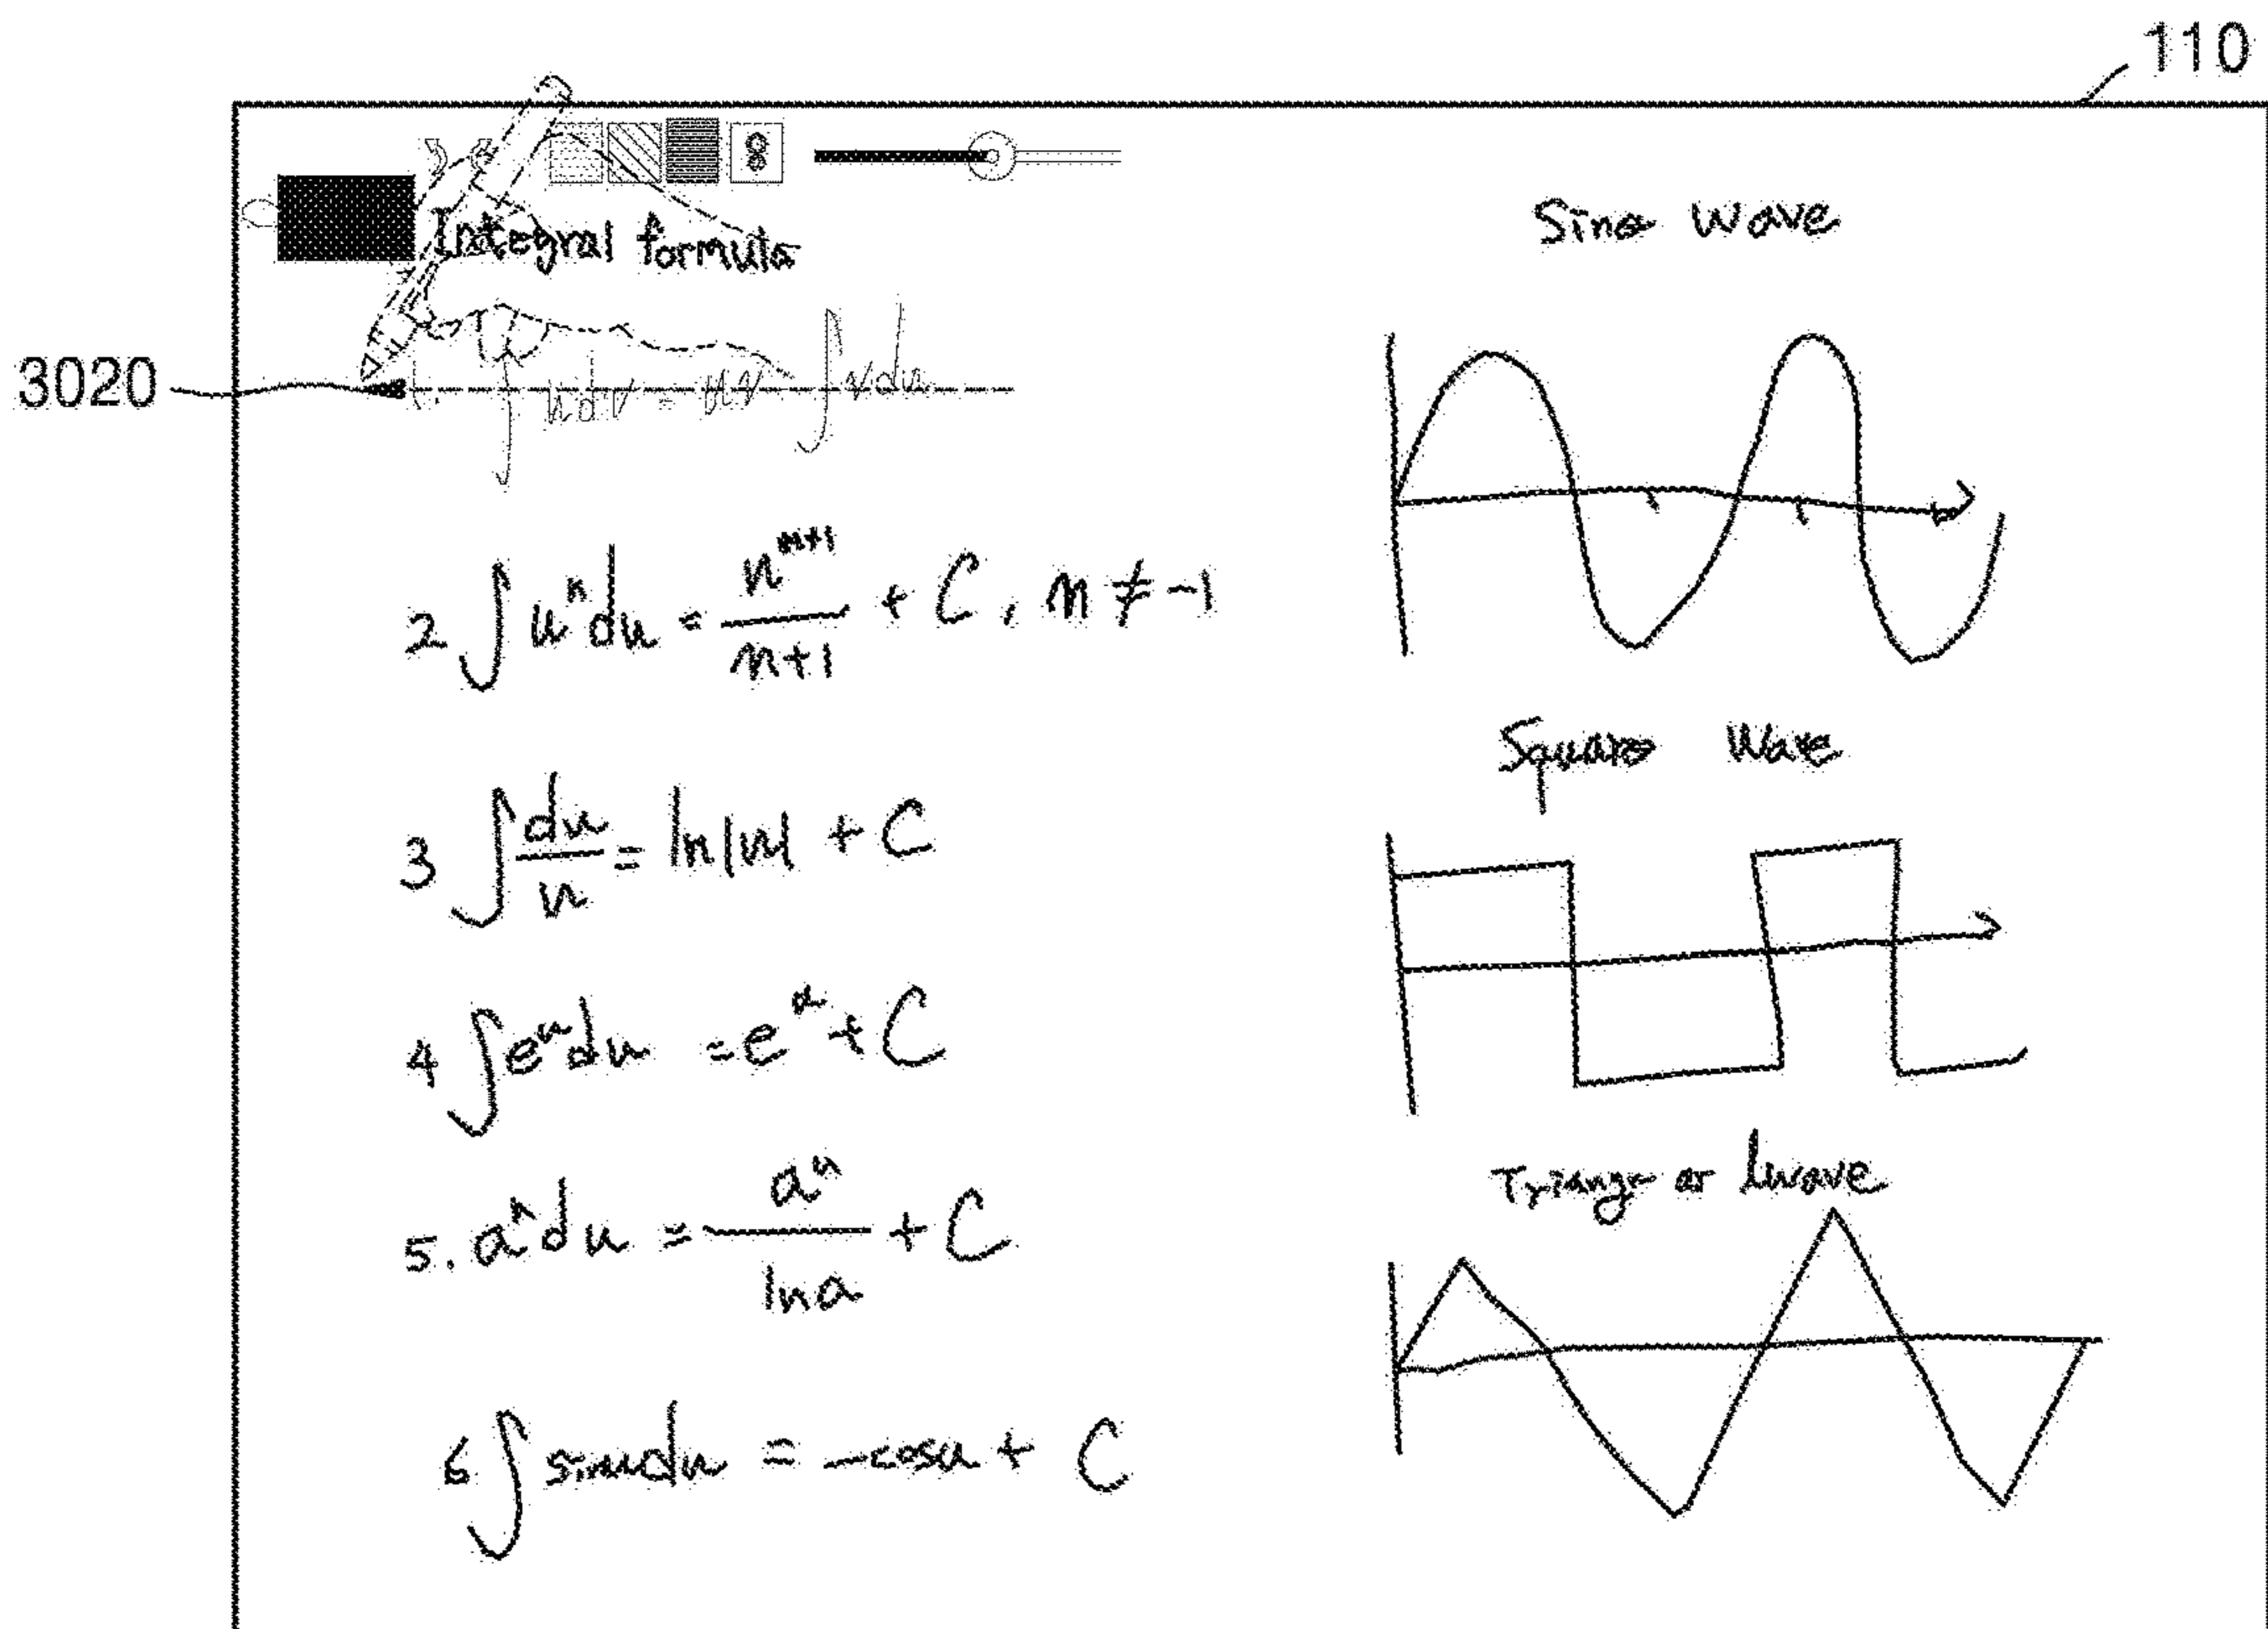 110
Integral formula
3020
1. ∫ u dv = uv ∫ v du
2 ∫ u^n du = n^{n+1}/n+1 + C, n ≠ -1
3 ∫ du/u = ln|u| + C
4 ∫ e^u du = e^u + C
5. a^n du = a^u/ln a + C
6 ∫ sin u du = -cos u + C
Sine wave
Square Wave